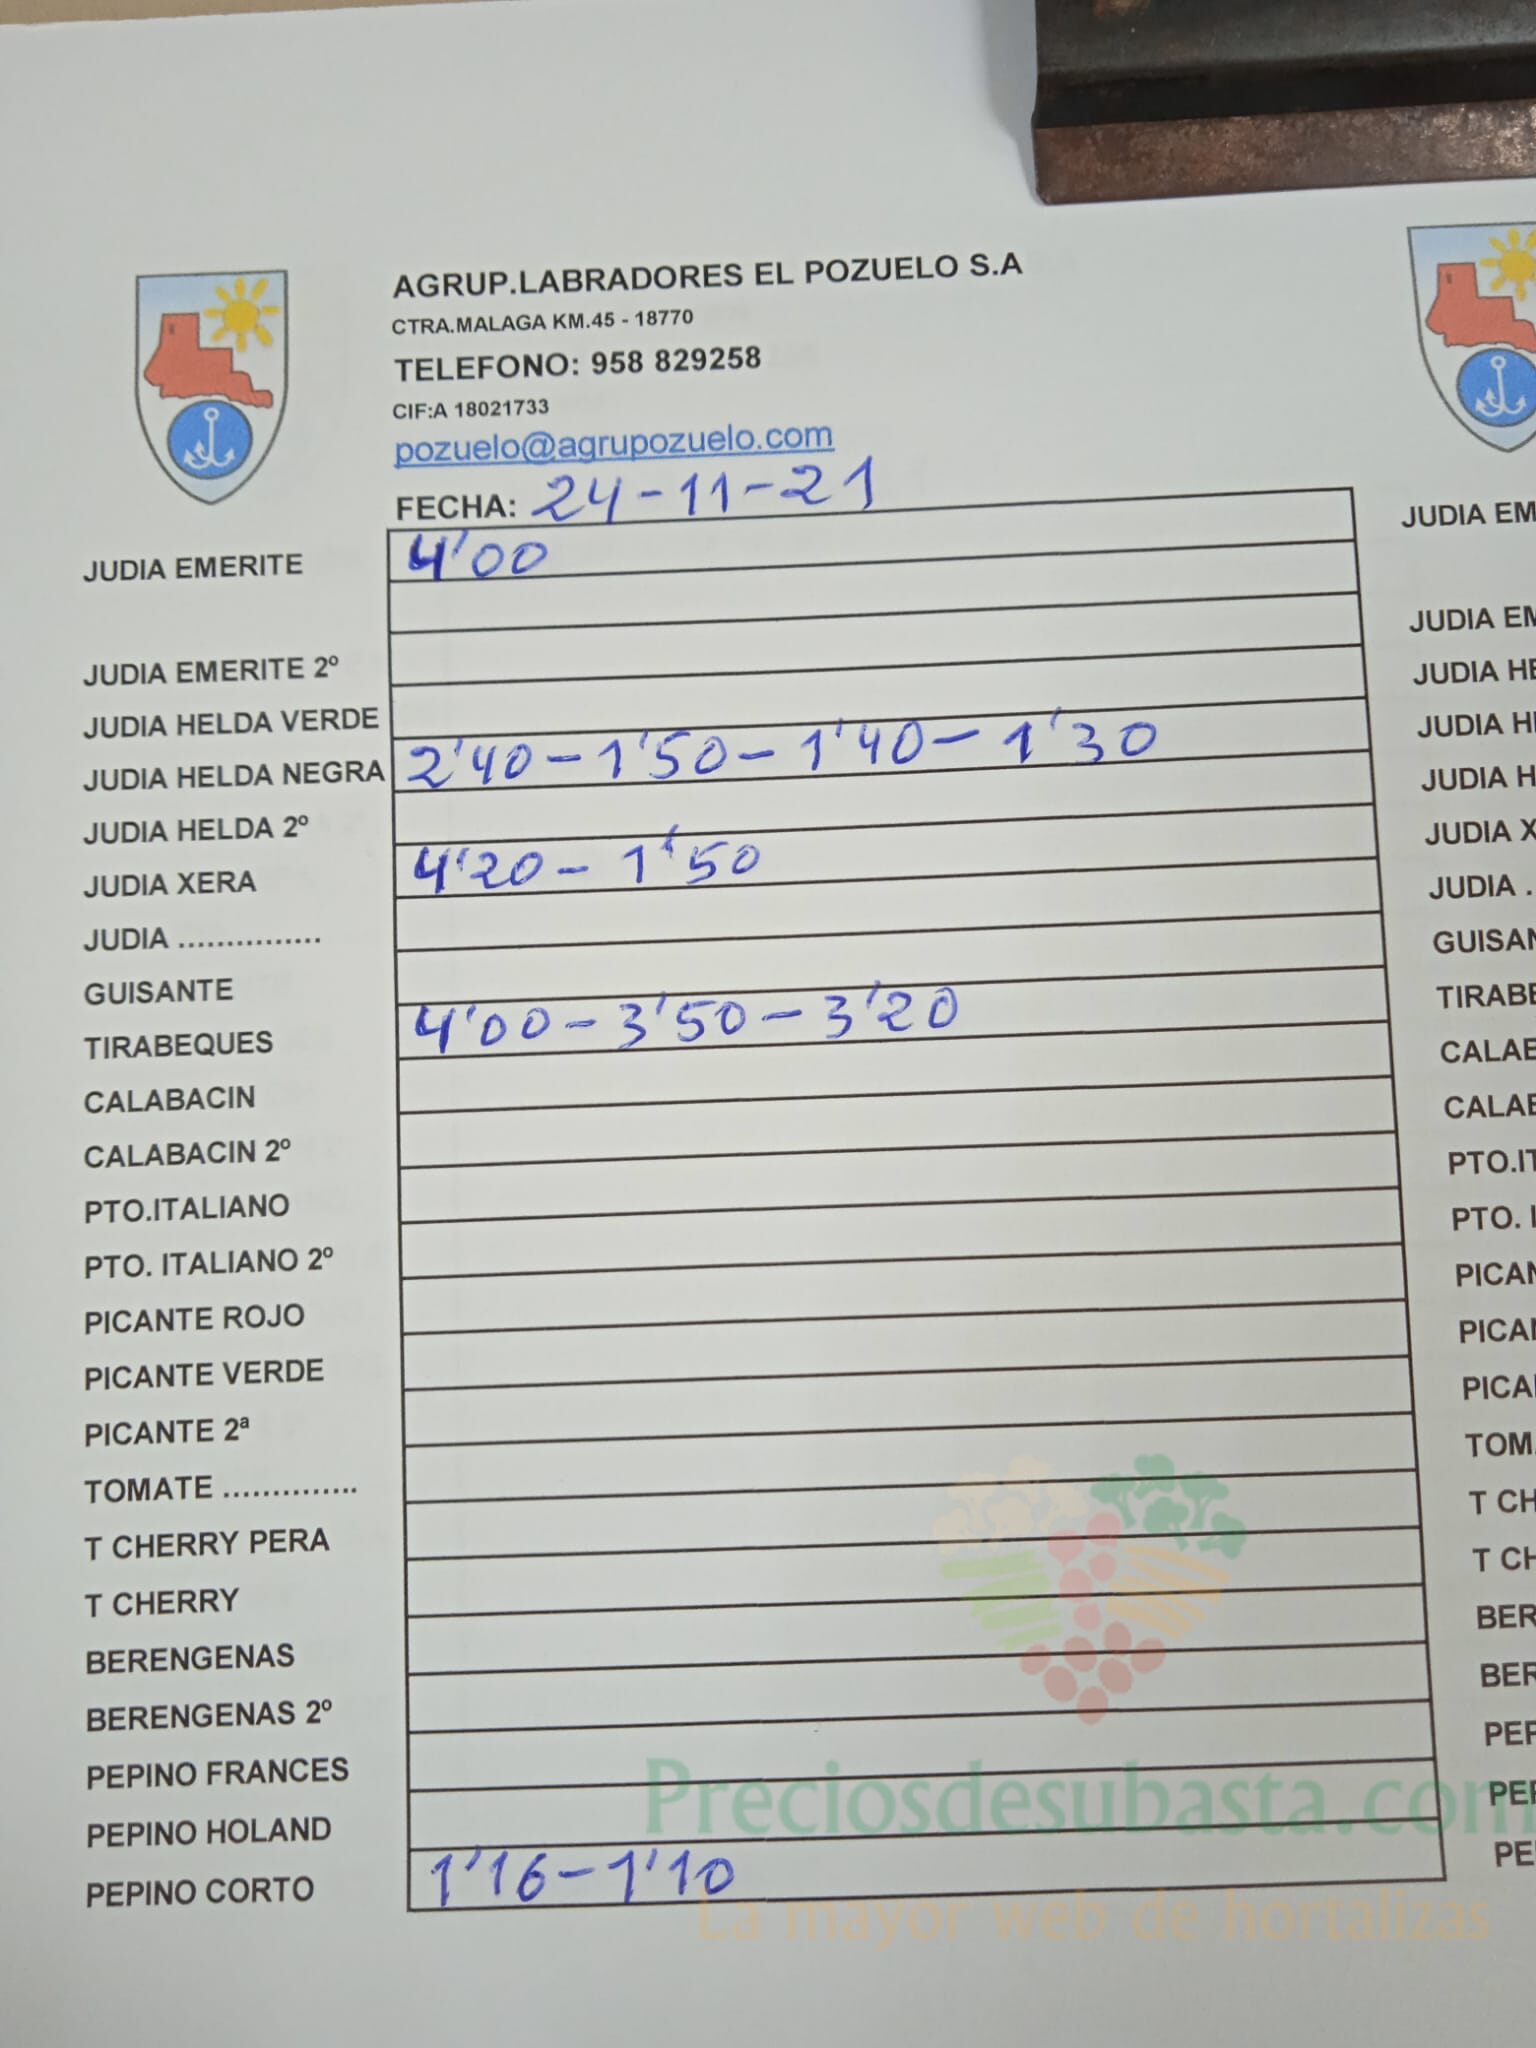 AGRUP.LABRADORES EL POZUELO S.A
CTRA.MALAGA KM.45 - 18770
TELEFONO: 958 829258
CIF:A 18021733
pozuelo@agrupozuelo.com
FECHA: 24-11-21
JUDIA EMERITE 4'00
JUDIA EMERITE 2º
JUDIA HELDA VERDE
JUDIA HELDA NEGRA 2'40-1'50-1'40-1'30
JUDIA HELDA 2º
JUDIA XERA 4'20-1'50
JUDIA ...............
GUISANTE
TIRABEQUES 4'00-3'50-3'20
CALABACIN
CALABACIN 2º
PTO.ITALIANO
PTO. ITALIANO 2º
PICANTE ROJO
PICANTE VERDE
PICANTE 2ª
TOMATE ..............
T CHERRY PERA
T CHERRY
BERENGENAS
BERENGENAS 2º
PEPINO FRANCES
PEPINO HOLAND
PEPINO CORTO 1'16-1'10
Preciosdesubasta.com
La mayor web de hortalizas
JUDIA EM
JUDIA EM
JUDIA HE
JUDIA HE
JUDIA H
JUDIA X
JUDIA .
GUISAN
TIRABE
CALAB
CALAB
PTO.IT
PTO. I
PICAN
PICAN
PICA
TOM
T CH
T CH
BER
BER
PEP
PEP
PE